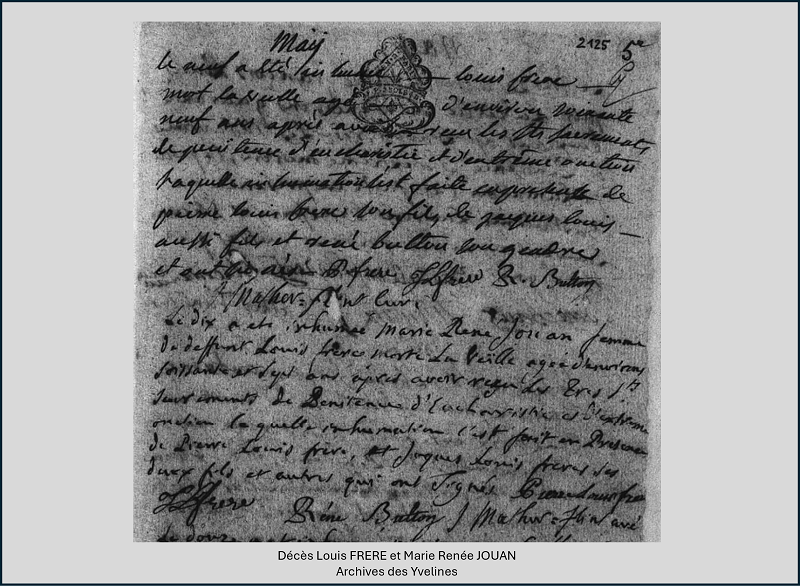 May 2125 5e
le neuf a été inhumé louis frere
mort la veille agé d'environ soixante
neuf ans après avoir reçu les Sts sacrements
de penitence d'eucharistie et d'extreme onction
laquelle inhumation s'est faite en presence de
pierre louis frere son fils, de jacques louis
aussi fils et rené button son gendre,
et ont signé P frere JLfrere R. Button
Mathor=
Le dix a ete inhumeé Marie Rene Jouan femme
de deffunt Louis frere morte La Veille ageé d'environ
soissante et sept ans après avoir reçu Les Tres Sts
sacrements de Penitence d'Eucharistie et d'extreme
onction laquelle inhumation s'est fait en Presence
de Pierre Louis frere, et Jaques Louis freres ses
deux fils et autres qui ont Signés Pierre Louis frere
JLfrere Réne Button J Mathor=
Le douze
Décès Louis FRERE et Marie Renée JOUAN
Archives des Yvelines